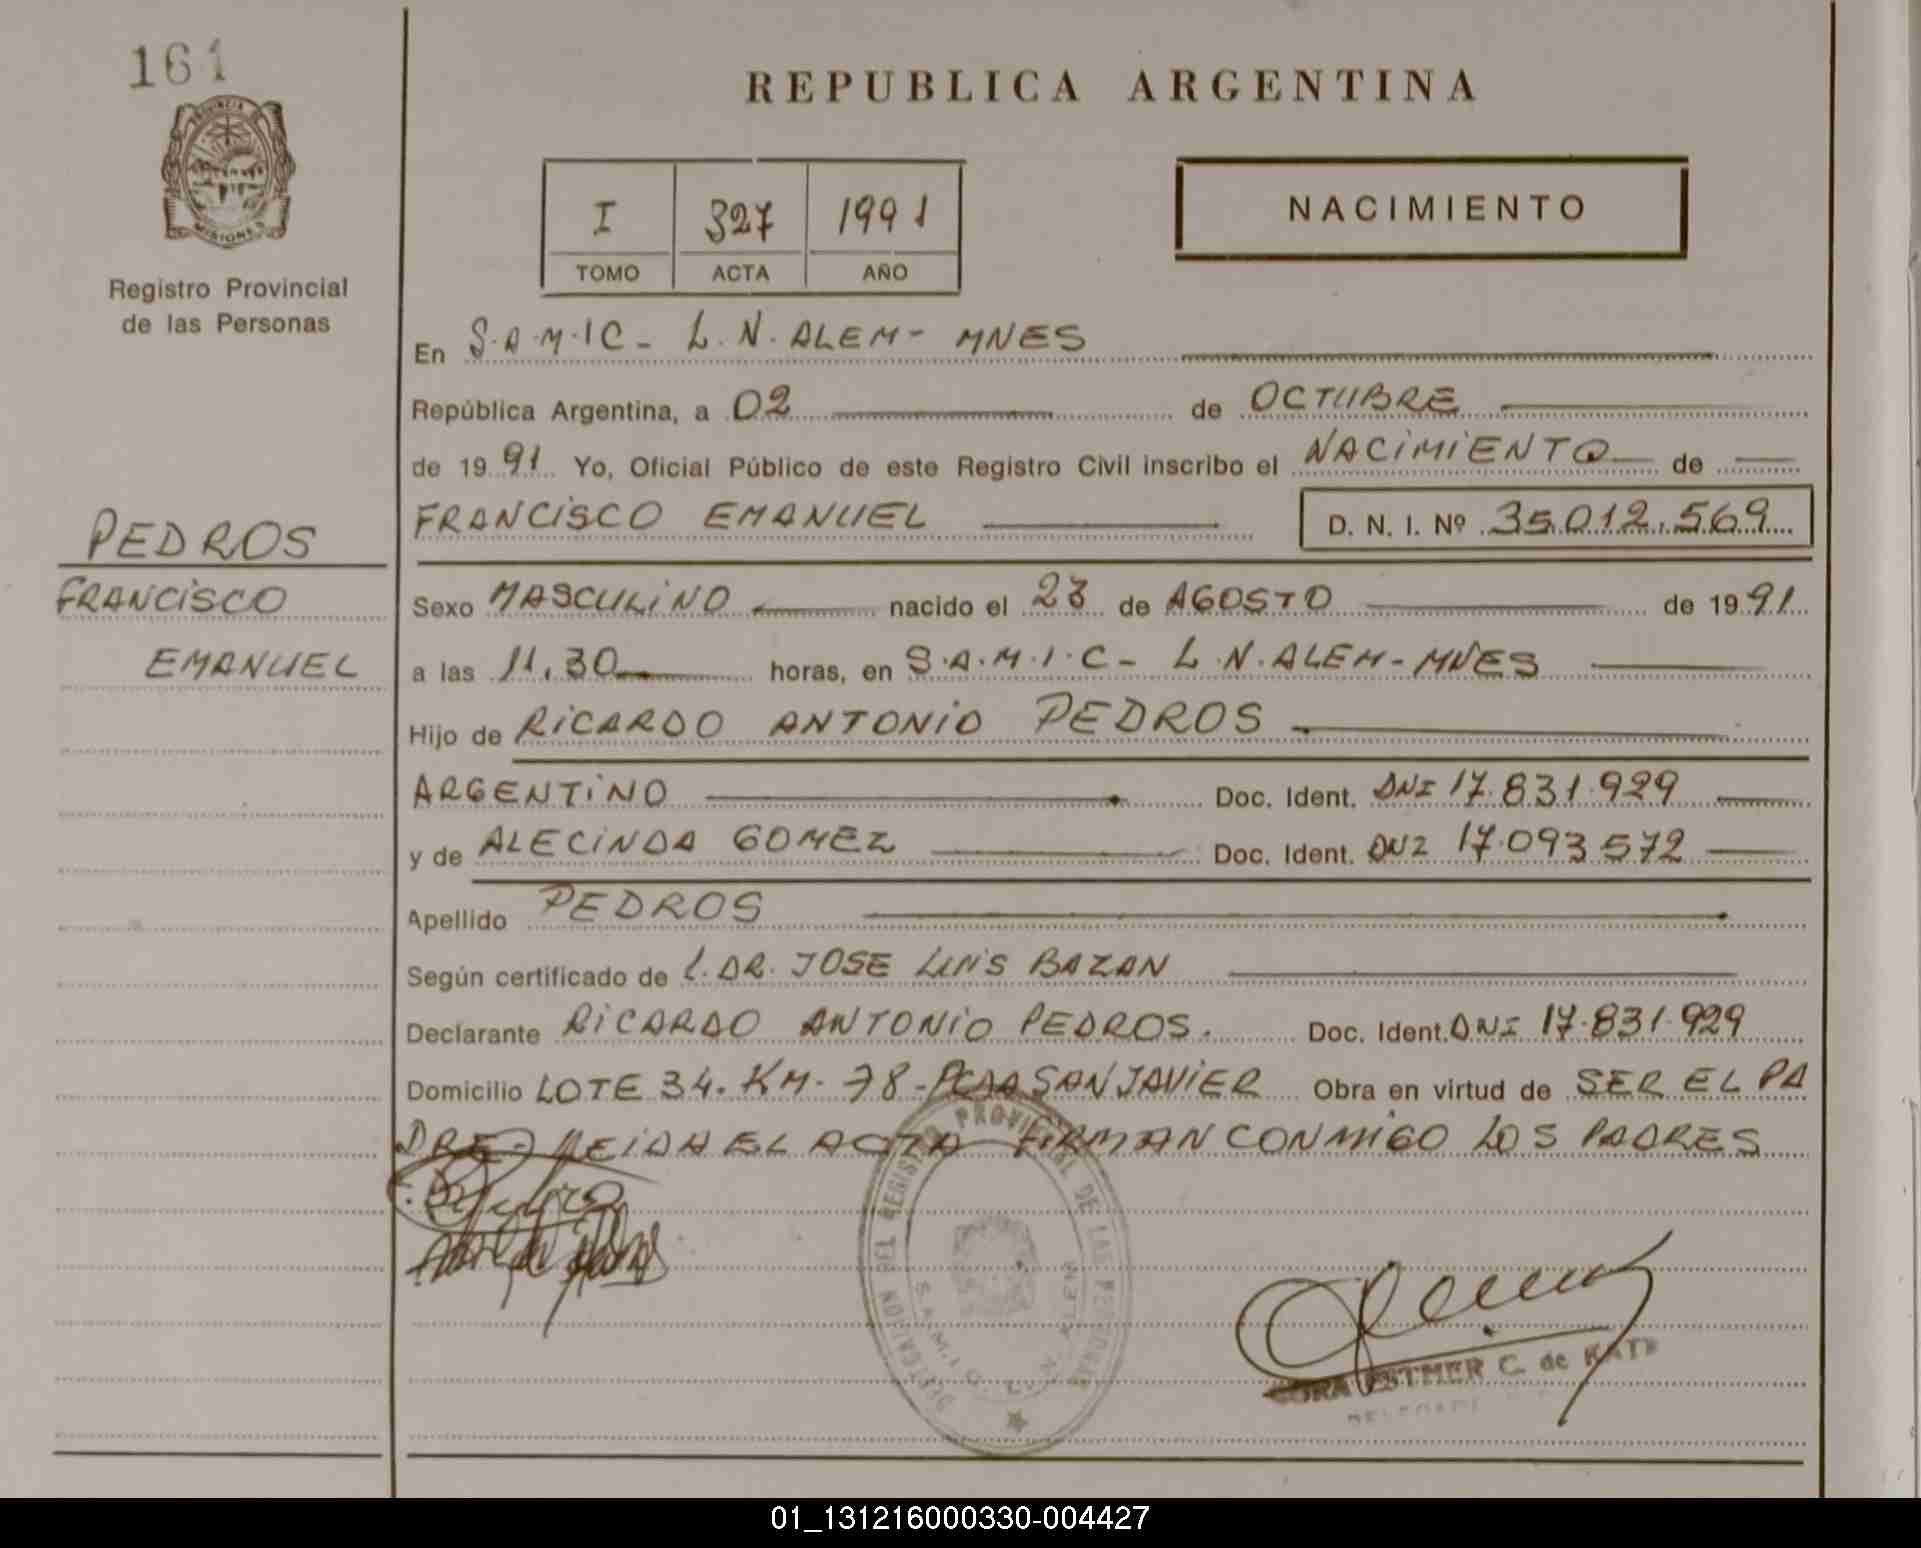 161
PROVINCIA DE
MISIONES
Registro Provincial
de las Personas
PEDROS
FRANCISCO
EMANUEL
REPUBLICA ARGENTINA
I 327 1991
TOMO ACTA AÑO
NACIMIENTO
En S.A.M.I.C - L.N. ALEM - MNES
República Argentina, a 02 de OCTUBRE
de 19 91 Yo, Oficial Público de este Registro Civil inscribo el NACIMIENTO de
FRANCISCO EMANUEL D. N. I. Nº 35.012.569
Sexo MASCULINO nacido el 23 de AGOSTO de 19 91
a las 11,30 horas, en S.A.M.I.C - L.N. ALEM - MNES
Hijo de RICARDO ANTONIO PEDROS
ARGENTINO Doc. Ident. DNI 17.831.929
y de ALECINDA GOMEZ Doc. Ident. DNI 17.093.572
Apellido PEDROS
Según certificado de L. DR. JOSE LUIS BAZAN
Declarante RICARDO ANTONIO PEDROS. Doc. Ident. DNI 17.831.929
Domicilio LOTE 34. KM. 78 - PCIA SAN JAVIER Obra en virtud de SER EL PA
DRE - LEIDA EL ACTA FIRMAN CONMIGO LOS PADRES
DELEGACION DEL REGISTRO PROVINCIAL DE LAS PERSONAS
S.A.M.I.C. L.N. ALEM
ESTHER C. de
01_131216000330-004427